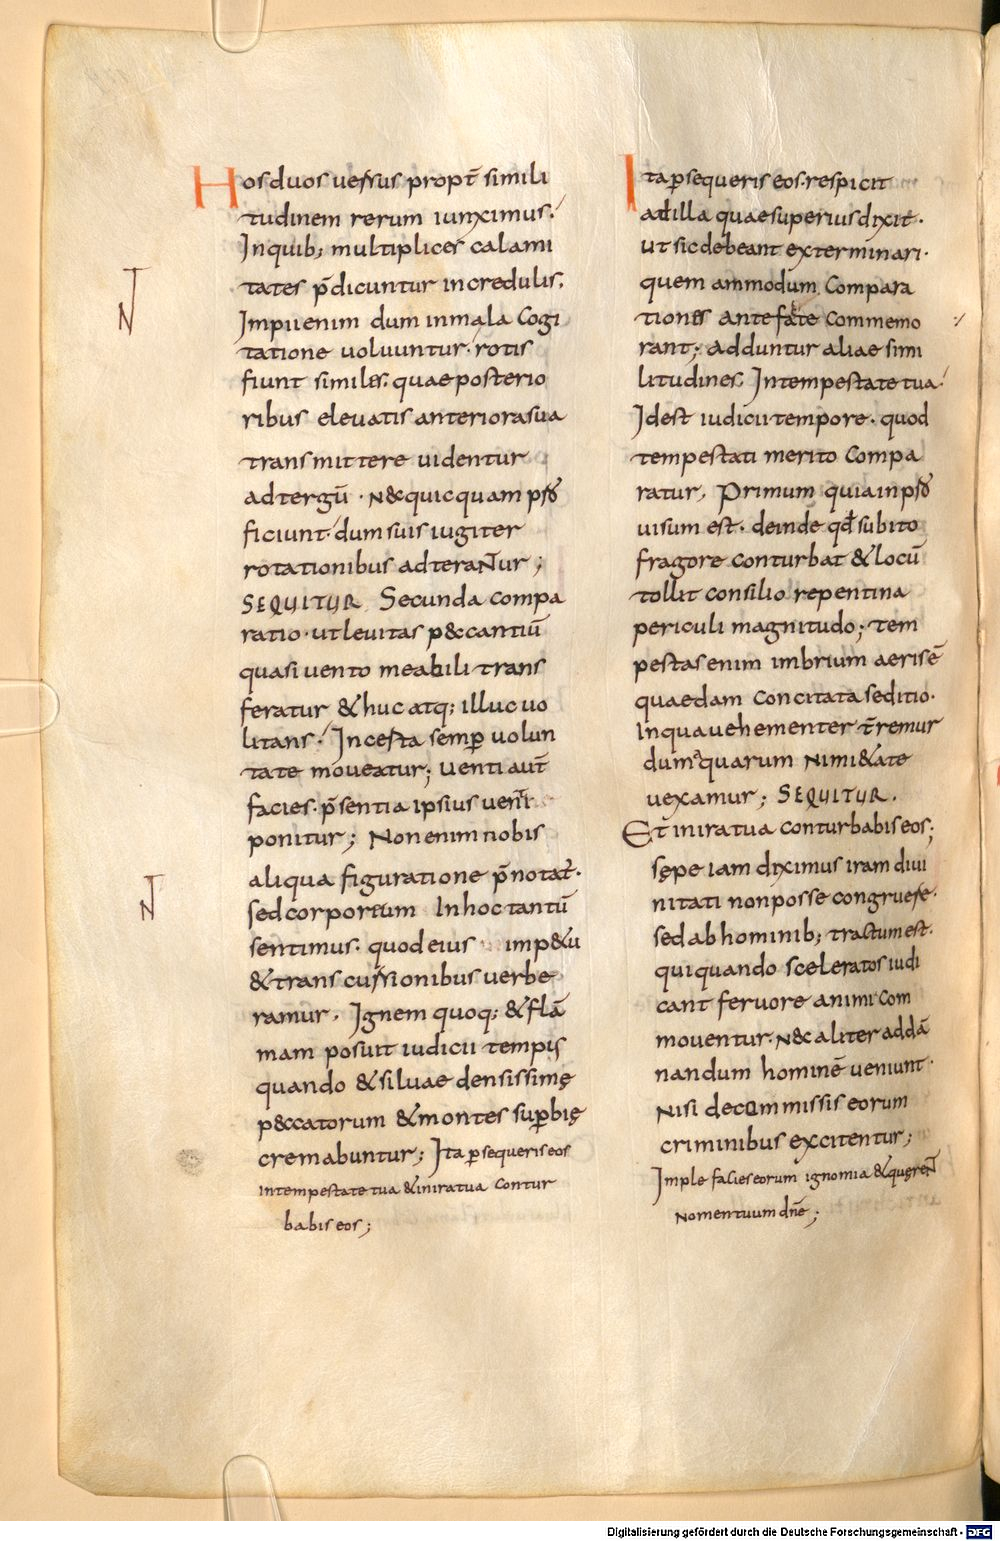 Hos duos uersus propt̄ simili
tudinem rerum iunximus.
Inquib; multiplices calami
tates p̄dicuntur incredulis.
Impii enim dum inmala Cogi
tatione uoluuntur. rotis
fiunt similes. quae posterio
ribus eleuatis anteriorasua
transmittere uidentur
adtergū. N&quicquam
ficiunt. dum suis iugiter
rotationibus adteraNTur;
SEQUITUR Secunda compa
ratio. ut leuitas p&ccantiū
quasi uento meabili trans
feratur &huc atq; illuc uo
litans. Incesta semꝑ uolun
tate moueatur; Uenti aut̄
facies. p̄sentia ipsius uenti
ponitur; Non enim nobis
aliqua figuratione p̄notat.
sed corporeum Inhoctantū
sentimus. quod eius imp&u
&transcussionibus uerbe
ramur. Ignem quoq; &flā
mam posuit iudicii tempis
quando &siluae densissimę
p&ccatorum &montes suꝑbię
cremabuntur; Ita ꝑsequeris eos
Intempestate tua &inira tua Contur
babis eos;
N
N
Ita ꝑsequeris eos. respicit
ad illa quae superius dixit.
ut sic debeant exterminari.
quem ammodum Compara
tiones antefate Commemo
rant; Adduntur aliae simi
litudines. Intempestate tua.
Idest iudicii tempore. quod
tempestati merito Compa
ratur. Primum quia
uisum est. deinde qđ subito
fragore Conturbat &locū
tollit Consilio repentina
periculi magnitudo; tem
pestas enim imbrium aerisē
quaedam Concitata seditio.
Inqua uehementer t̄remur
dum aquarum Nimi&ate
uexamur; SEQUITUR.
Et inira tua Conturbabis eos;
sępe iam diximus iram diui
nitati non posse congruere.
sed ab hominib; tractum est.
qui quando sceleratos iudi
cant feruore animi Com
mouentur. N&caliter addā
nandum hominē ueniunt.
Nisi decommissis eorum
criminibus excitentur;
Imple facies eorum ignomia &quęreNT
Nomen tuum dn̄e;
Digitalisierung gefördert durch die Deutsche Forschungsgemeinschaft - DFG